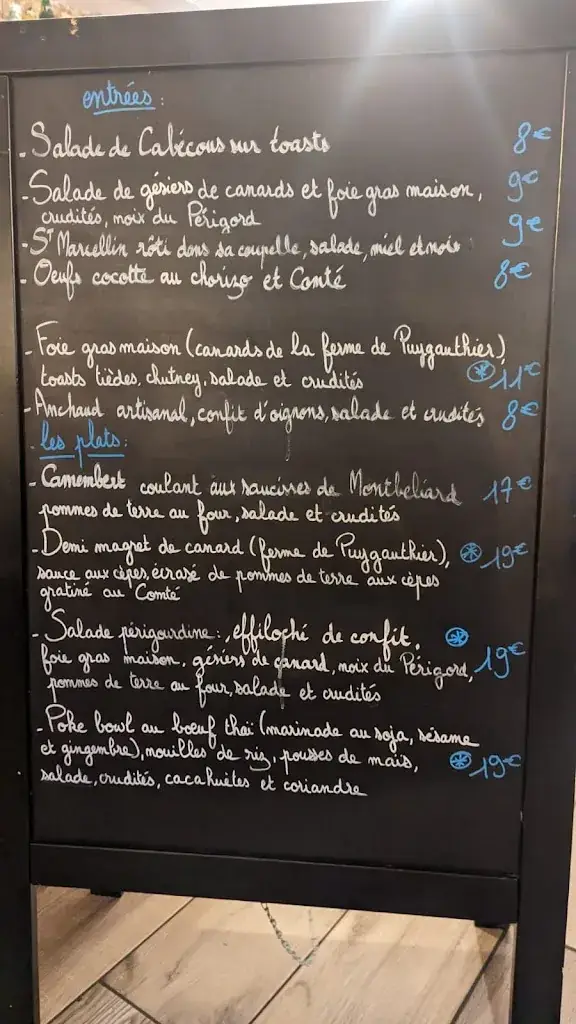 entrées :
- Salade de Cabécous sur toasts 8€
- Salade de gésiers de canards et foie gras maison, 9€
crudités, noix du Périgord
- St Marcellin rôti dans sa coupelle, salade, miel et noix 9€
- Oeufs cocotte au chorizo et Comté 8€
- Foie gras maison (canards de la ferme de Puygauthier)
toasts tièdes, chutney, salade et crudités 11€
- Anchaud artisanal, confit d'oignons, salade et crudités 8€
les plats :
- Camembert coulant aux saucisses de Montbéliard 17€
pommes de terre au four, salade et crudités
- Demi magret de canard (ferme de Puygauthier), 19€
sauce aux cèpes, écrasé de pommes de terre aux cèpes
gratiné au Comté
- Salade périgourdine : effiloché de confit,
foie gras maison, gésiers de canard, noix du Périgord, 19€
pommes de terre au four, salade et crudités
- Poke bowl au boeuf thaï (marinade au soja, sésame
et gingembre), nouilles de riz, pousses de maïs, 19€
salade, crudités, cacahuètes et coriandre